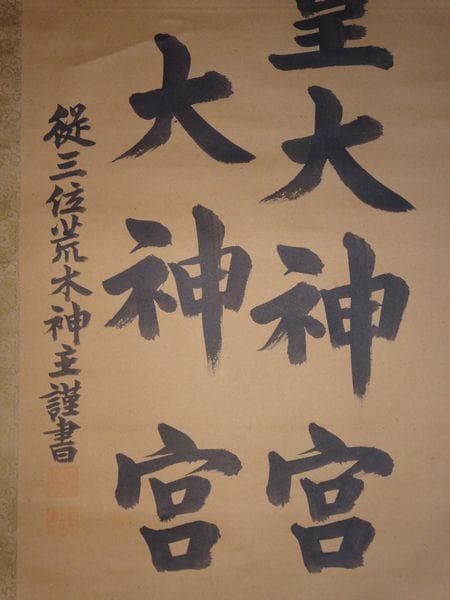 皇大神宮
大神宮
従三位荒木神主謹書